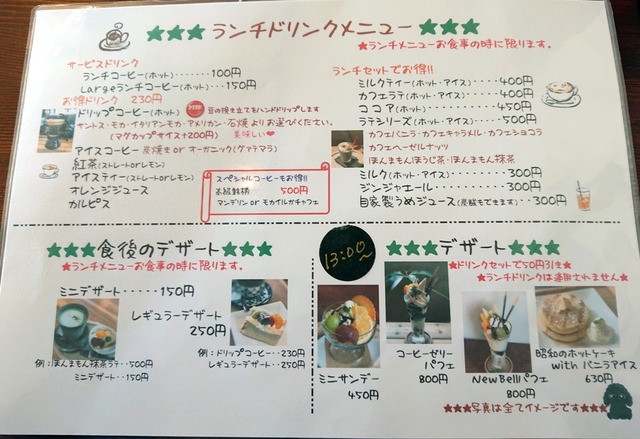 ★★★ランチドリンクメニュー★★★
★ランチメニューお食事の時に限ります。
サービスドリンク
ランチコーヒー(ホット)・・・・・・100円
Largeランチコーヒー(ホット)・・150円
お得ドリンク 230円
ドリップコーヒー(ホット) 豆の挽き立てをハンドドリップします
サントス・モカ・イタリアンモカ・アメリカン・石焼よりお選びください。
(マグカップサイズ+200円) 美味しい❤
アイスコーヒー 炭焼き or オーガニック(グァテマラ)
紅茶(ストレートorレモン)
アイスティー(ストレートorレモン)
オレンジジュース
カルピス
スペシャルコーヒーもお得!!
希銘柄 500円
マンデリン or モカイルガチャフェ
ランチセットでお得!!
ミルクティー(ホット・アイス)・・・・400円
カフェラテ(ホット・アイス)・・・・400円
ココア(ホット・アイス)・・・・・450円
ラテシリーズ(ホット・アイス)・・・500円
カフェバニラ・カフェキャラメル・カフェショコラ
カフェヘーゼルナッツ
ほんまもんほうじ茶・ほんまもん抹茶
ミルク(ホット・アイス)・・・・・300円
ジンジャエール・・・・・・・300円
自家製うめジュース(炭酸もできます)・・300円
★★★食後のデザート★★★
★ランチメニューお食事の時に限ります。
ミニデザート・・・・・150円
レギュラーデザート
250円
例:ほんまもん抹茶ラテ・・500円
ミニデザート・・150円
例:ドリップコーヒー・・230円
レギュラーデザート・・250円
13:00〜
★★★デザート★★★
★ドリンクセットで50円引き★
★ランチドリンクは適用されません★
ミニサンデー
450円
コーヒーゼリー
パフェ
800円
New Bellパフェ
800円
昭和のホットケーキ
with バニラアイス
630円
★★★写真は全てイメージです★★★